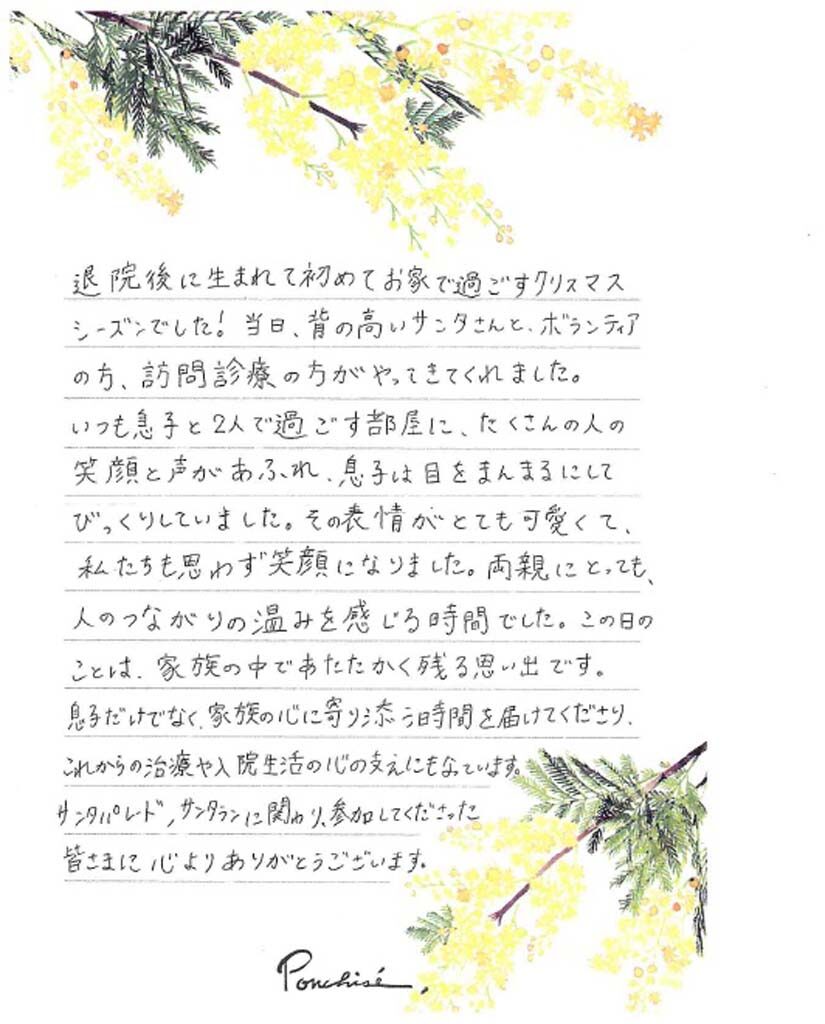 退院後に生まれて初めてお家で過ごすクリスマス
シーズンでした！当日、背の高いサンタさんと、ボランティア
の方、訪問診療の方がやってきてくれました。
いつも息子と2人で過ごす部屋に、たくさんの人の
笑顔と声があふれ、息子は目をまんまるにして
びっくりしていました。その表情がとても可愛くて、
私たちも思わず笑顔になりました。両親にとっても、
人のつながりの温みを感じる時間でした。この日の
ことは、家族の中であたたかく残る思い出です。
息子だけでなく、家族の心に寄り添う時間を届けてくださり、
これからの治療や入院生活の心の支えにもなっています。
サンタパレード、サンタランに関わり、参加してくださった
皆さまに心よりありがとうございます。
Ponchisé